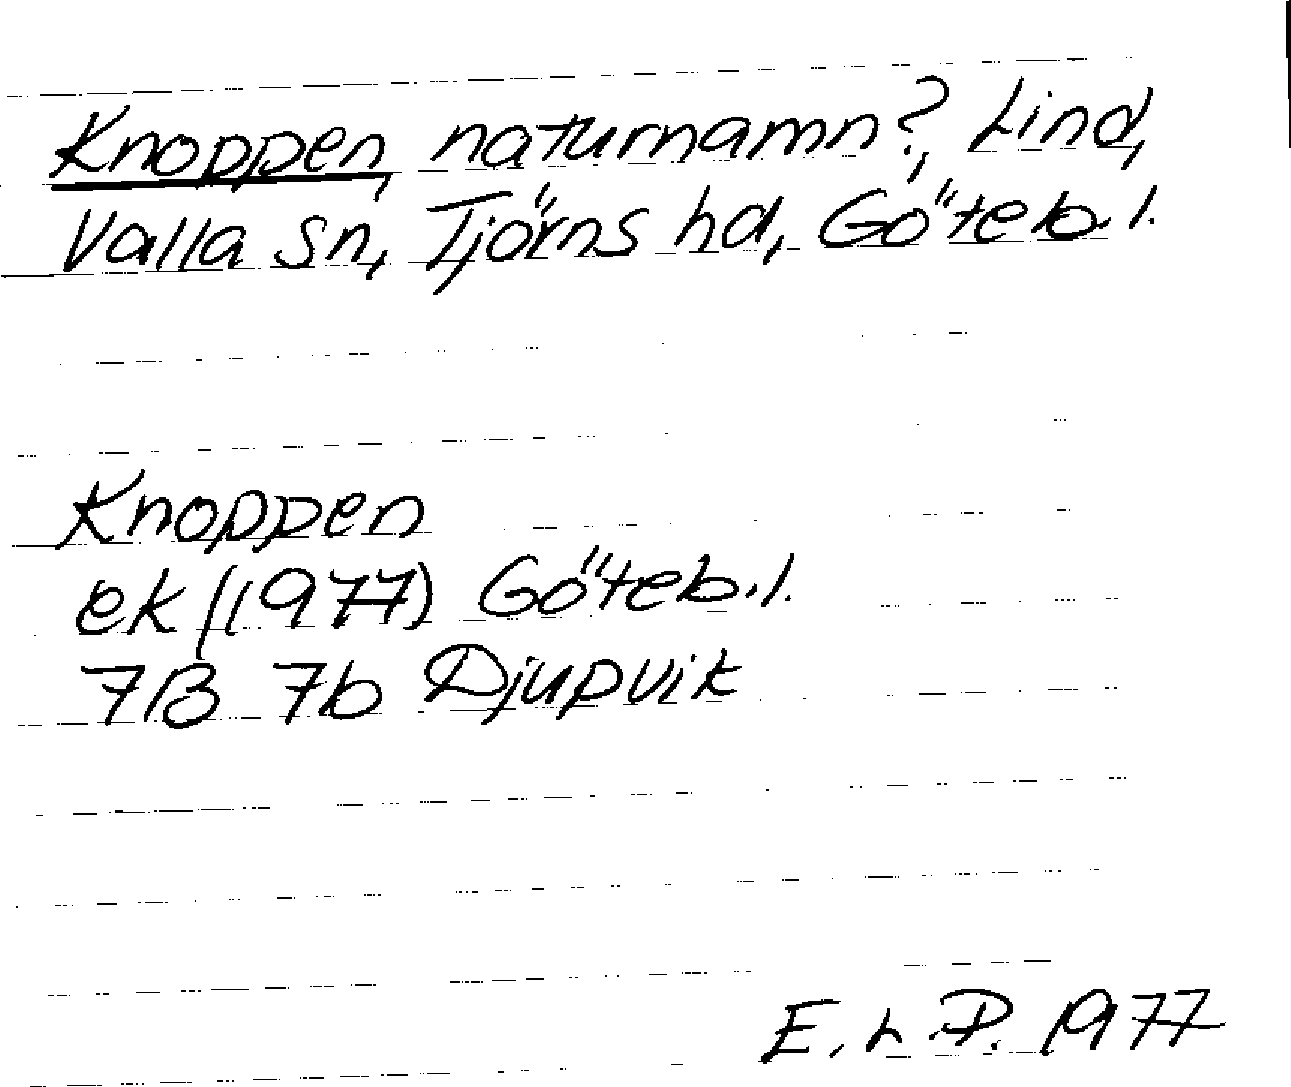 Knoppen, naturnamn?, Lind,
Valla sn, Tjörns hd, Göteb. l.
Knoppen
ek (1977) Göteb. l.
7B 7b Djupvik
E. L. P. 1977